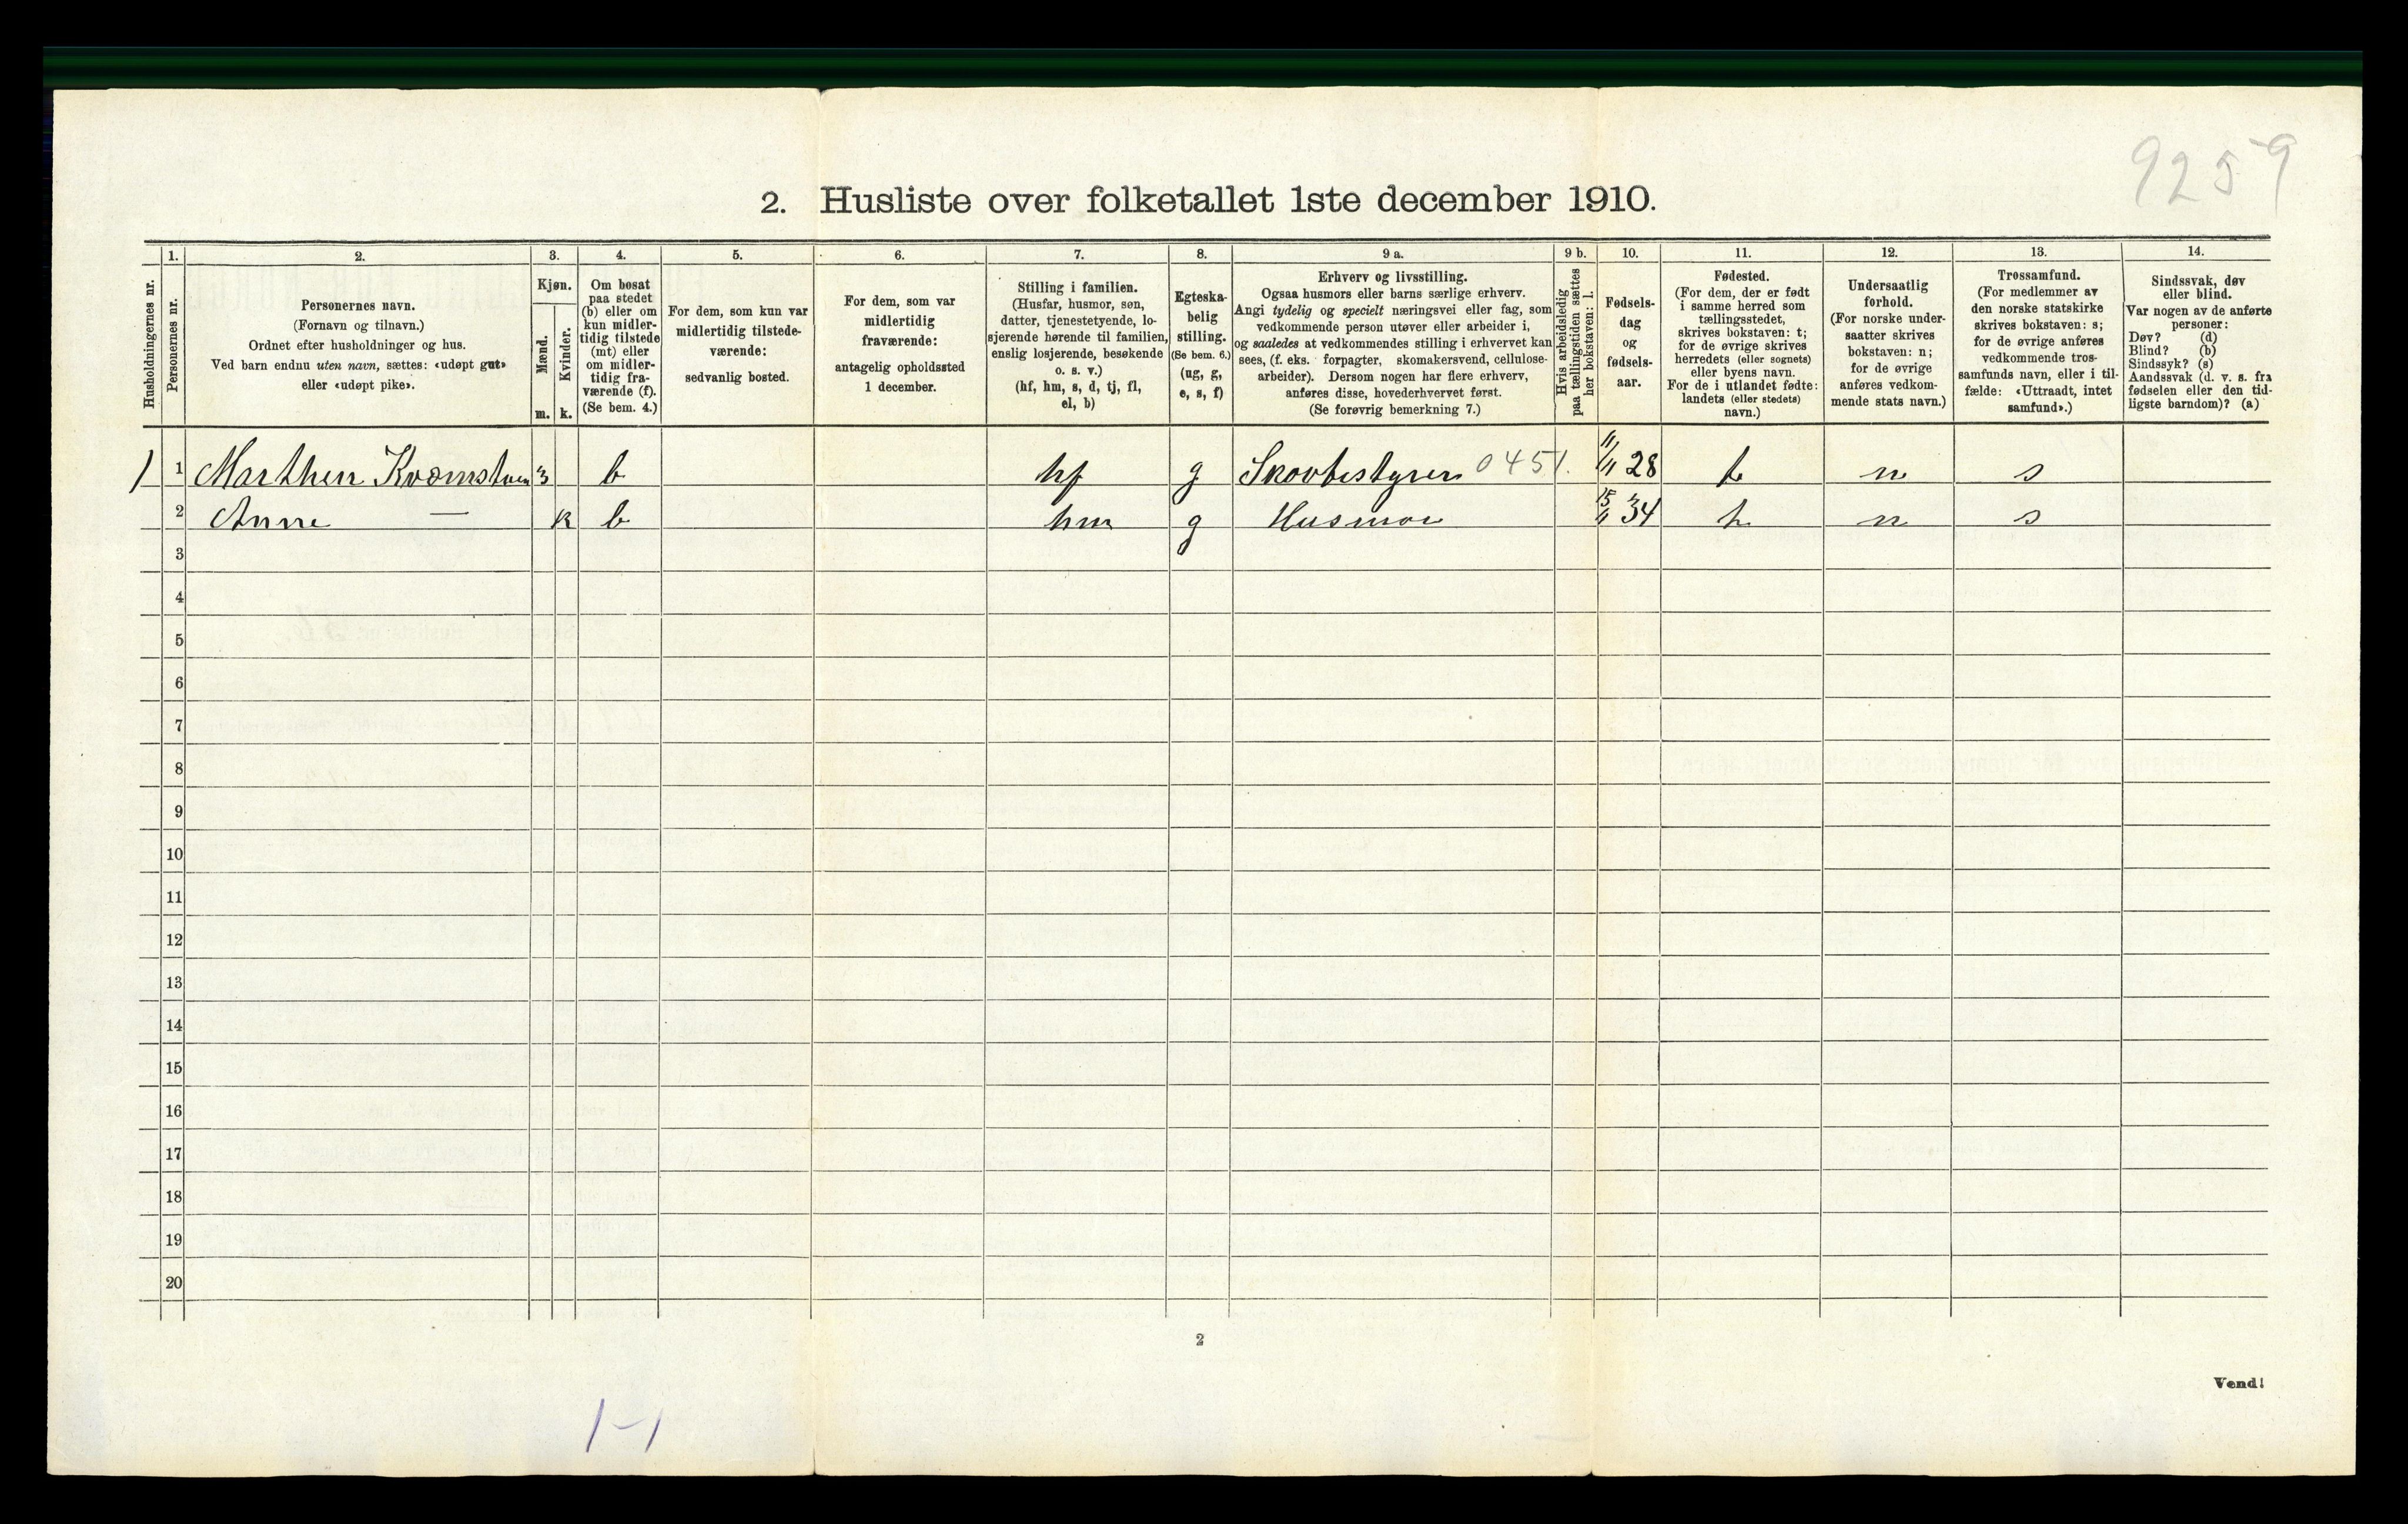 9259
2. Husliste over folketallet 1ste december 1910.
Husholdningernes nr.
1.
Personernes nr.
2.
Personernes navn.
(Fornavn og tilnavn.)
Ordnet efter husholdninger og hus.
Ved barn endnu uten navn, sættes: «udøpt gut»
eller «udøpt pike».
3.
Kjøn.
Mænd.
m.
Kvinder.
k.
4.
Om bosat
paa stedet
(b) eller om
kun midler-
tidig tilstede
(mt) eller
om midler-
tidig fra-
værende (f).
(Se bem. 4.)
5.
For dem, som kun var
midlertidig tilstede-
værende:
sedvanlig bosted.
6.
For dem, som var
midlertidig
fraværende:
antagelig opholdssted
1 december.
7.
Stilling i familien.
(Husfar, husmor, søn,
datter, tjenestetyende, lo-
sjerende hørende til familien,
enslig losjerende, besøkende
o. s. v.)
(hf, hm, s, d, tj, fl,
el, b)
8.
Egteska-
belig
stilling.
(Se bem. 6.)
(ug, g,
e, s, f)
9 a.
Erhverv og livsstilling.
Ogsaa husmors eller barns særlige erhverv.
Angi tydelig og specielt næringsvei eller fag, som
vedkommende person utøver eller arbeider i,
og saaledes at vedkommendes stilling i erhvervet kan
sees, (f. eks. forpagter, skomakersvend, cellulose-
arbeider). Dersom nogen har flere erhverv,
anføres disse, hovederhvervet først.
(Se forøvrig bemerkning 7.)
9 b.
Hvis arbeidsledig
paa tællingstiden sættes
her bokstaven: l.
10.
Fødsels-
dag
og
fødsels-
aar.
11.
Fødested.
(For dem, der er født
i samme herred som
tællingsstedet,
skrives bokstaven: t;
for de øvrige skrives
herredets (eller sognets)
eller byens navn.
For de i utlandet fødte:
landets (eller stedets)
navn.)
12.
Undersaatlig
forhold.
(For norske under-
saatter skrives
bokstaven: n;
for de øvrige
anføres vedkom-
mende stats navn.)
13.
Trossamfund.
(For medlemmer av
den norske statskirke
skrives bokstaven: s;
for de øvrige anføres
vedkommende tros-
samfunds navn, eller i til-
fælde: «Uttraadt, intet
samfund».)
14.
Sindssvak, døv
eller blind.
Var nogen av de anførte
personer:
Døv? (d)
Blind? (b)
Sindssyk? (s)
Aandssvak (d. v. s. fra
fødselen eller den tid-
ligste barndom)? (a)
1 1 Marthen b hf g Skovbestyrer 0451. 11/11 28 t n s
2 Anne — k b hm g Husmor 34 t n s
3
4
5
6
7
8
9
10
11
12
13
14
15
16
17
18
19
20
2
Vend!
1-1